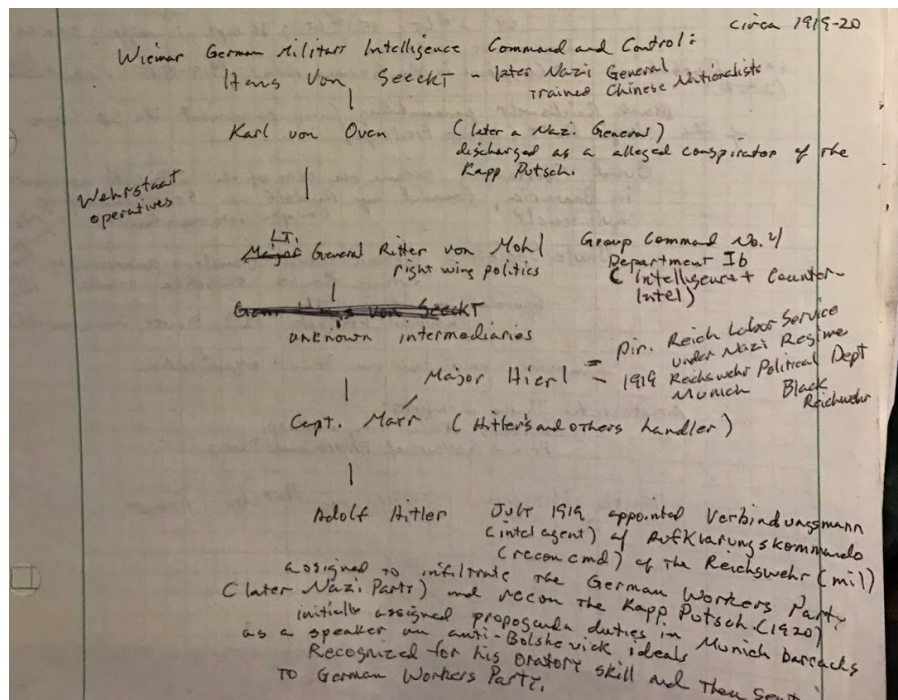 circa 1919-20
Wiemar German Militarr Intelligence Command and Control:
Hans Von Seeckt - later Nazi General
Trained Chinese Nationalists
Karl von Oven (later a Nazi General)
discharged as a alleged conspirator of the
Kapp Putsch.
Wehrstaat
operatives
LT.
Major General Ritter von Mohl Group Command No. 4/
right wing politics Department Ib
(Intelligence + Counter-
Intel)
von Seeckt
unknown intermediaries
Major Hierl = Dir. Reich Labor Service
under Nazi Regime
- 1919 Reichswehr Political Dept
Munich Black
Reichwehr
Capt. Marr (Hitler's and others handler)
Adolf Hitler July 1919 appointed Verbindungsmann
(intel agent) of Aufklarungskommando
(recon cmd) of the Reichswehr (mil)
assigned to infiltrate the German Workers Party
(later Nazi Party) and recon the Kapp Putsch. (1920)
initially assigned propoganda duties in Munich barracks
as a speaker on anti-Bolshevick ideals
Recognized for his oratory skill and then sent
TO German Workers Party.